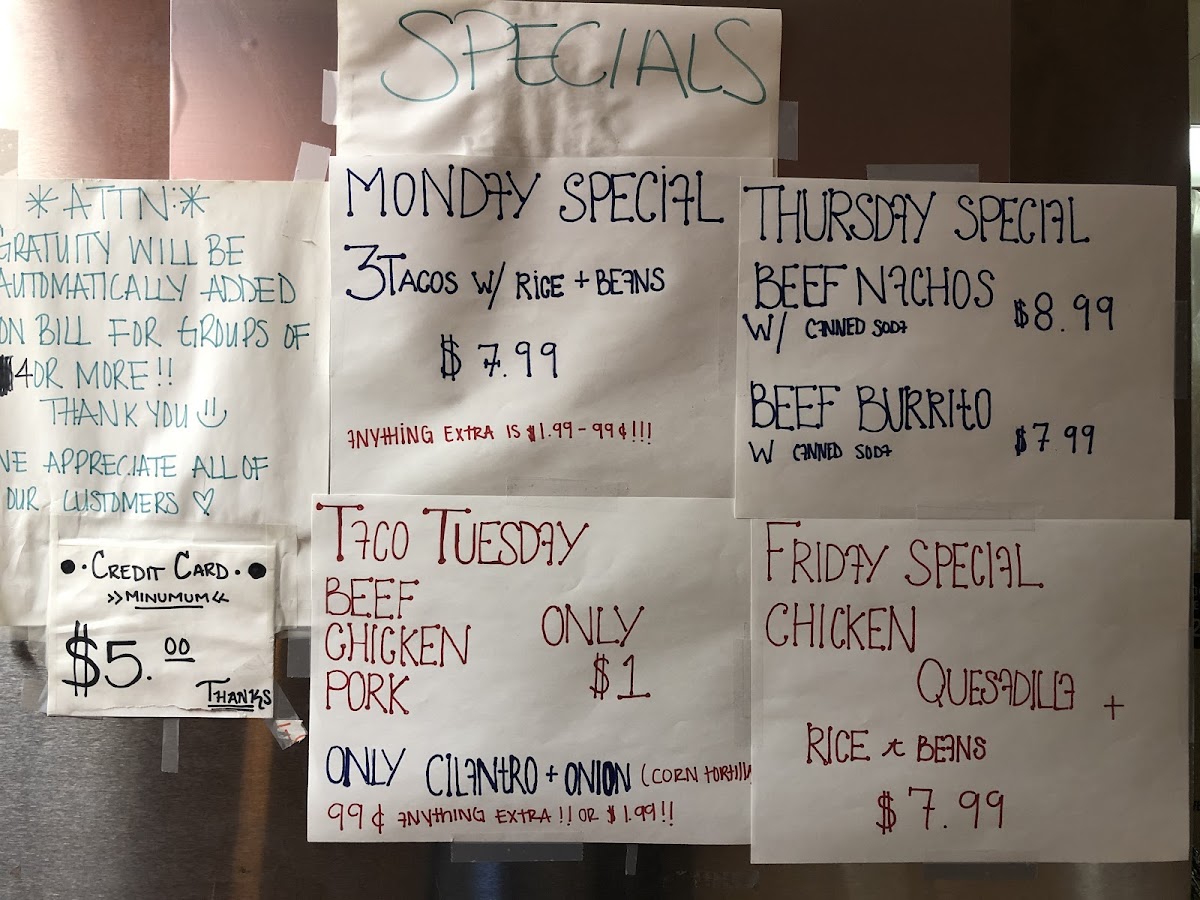 SPECIALS
*ATTN:*
GRATUITY WILL BE
AUTOMATICALLY ADDED
ON BILL FOR GROUPS OF
4 OR MORE!!
THANK YOU
WE APPRECIATE ALL OF
OUR CUSTOMERS ♡
• CREDIT CARD •
>> MINUMUM <<
$5.00
THANKS
MONDAY SPECIAL
3 TACOS W/ RICE + BEANS
$7.99
ANYTHING EXTRA IS $1.99 - 99¢!!!
TACO TUESDAY
BEEF
CHICKEN
PORK
ONLY
$1
ONLY CILANTRO + ONION (CORN
99¢ ANYTHING EXTRA!! OR $1.99!!
THURSDAY SPECIAL
BEEF NACHOS
W/ CANNED SODA
$8.99
BEEF BURRITO
W CANNED SODA
$7.99
FRIDAY SPECIAL
CHICKEN
QUESADILLA +
RICE & BEANS
$7.99